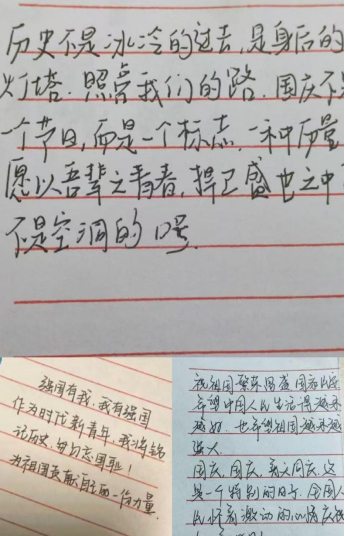 历史不是冰冷的过去,是身后的
灯塔.照亮我们的路.国庆不
一个节日,而是一个标志.一种历量
愿以吾辈之青春,捍卫盛世之中
不是空洞的口号.
强国有我,我有强国
作为时代新青年,我将铭
记历史,勿忘国耻!
为祖国贡献自己的一份力量.
祝祖国繁荣昌盛国泰民安
希望中国人民生活得越来
越好,也希望祖国越来越
强大
国庆,国庆,普天同庆,这
是一个特别的日子.全国人
民怀着激动的心情庆祝